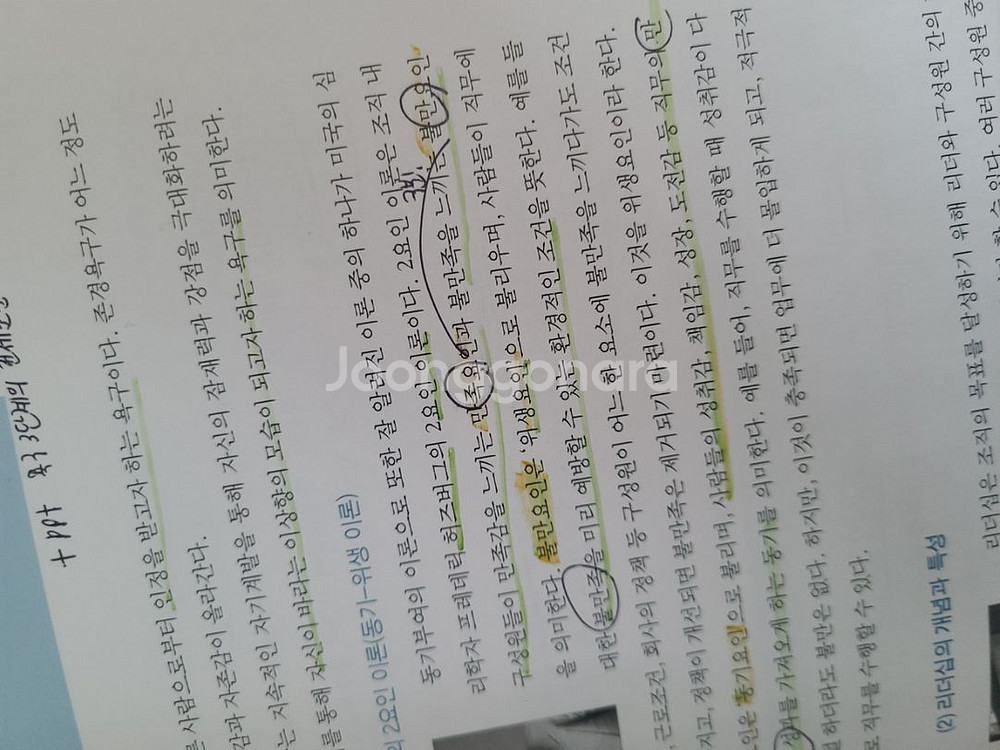 + ppt 욕구 3단계의
사람으로부터 인정을 받고자 하는 욕구이다. 존경욕구가 어느 정도
감과 자존감이 올라간다.
는 지속적인 자기계발을 통해 자신의 잠재력과 강점을 극대화하려는
를 통해 자신이 바라는 이상향의 모습이 되고자하는 욕구를 의미한다.
의 2요인 이론(동기-위생 이론)
동기부여의 이론으로 또한 잘 알려진 이론 중의 하나가 미국의 심
리학자 프레데릭 허즈버그의 2요인 이론이다. 2요인 이론은 조직 내
구성원들이 만족감을 느끼는 만족요인과 불만족을 느끼는 불만요인
을 의미한다. 불만요인은 '위생요인'으로 불리우며, 사람들이 직무에
대한 불만족을 미리 예방할 수 있는 환경적인 조건을 뜻한다. 예를 들
, 근로조건, 회사의 정책 등 구성원이 어느 한 요소에 불만족을 느끼다가도 조건
지고, 정책이 개선되면 불만족은 제거되기 마련이다. 이것을 위생요인이라 한다.
인은 '동기요인'으로 불리며, 사람들의 성취감, 책임감, 성장, 도전감 등 직무의 만
결과를 가져오게 하는 동기를 의미한다. 예를 들어, 직무를 수행할 때 성취감이 다
하더라도 불만은 없다. 하지만, 이것이 충족되면 업무에 더 몰입하게 되고, 적극적
로 직무를 수행할 수 있다.
(2) 리더십의 개념과 특성
리더십은 조직의 목표를 달성하기 위해 리더와 구성원 간의
수 있다. 여러 구성원 중
Joonggonara